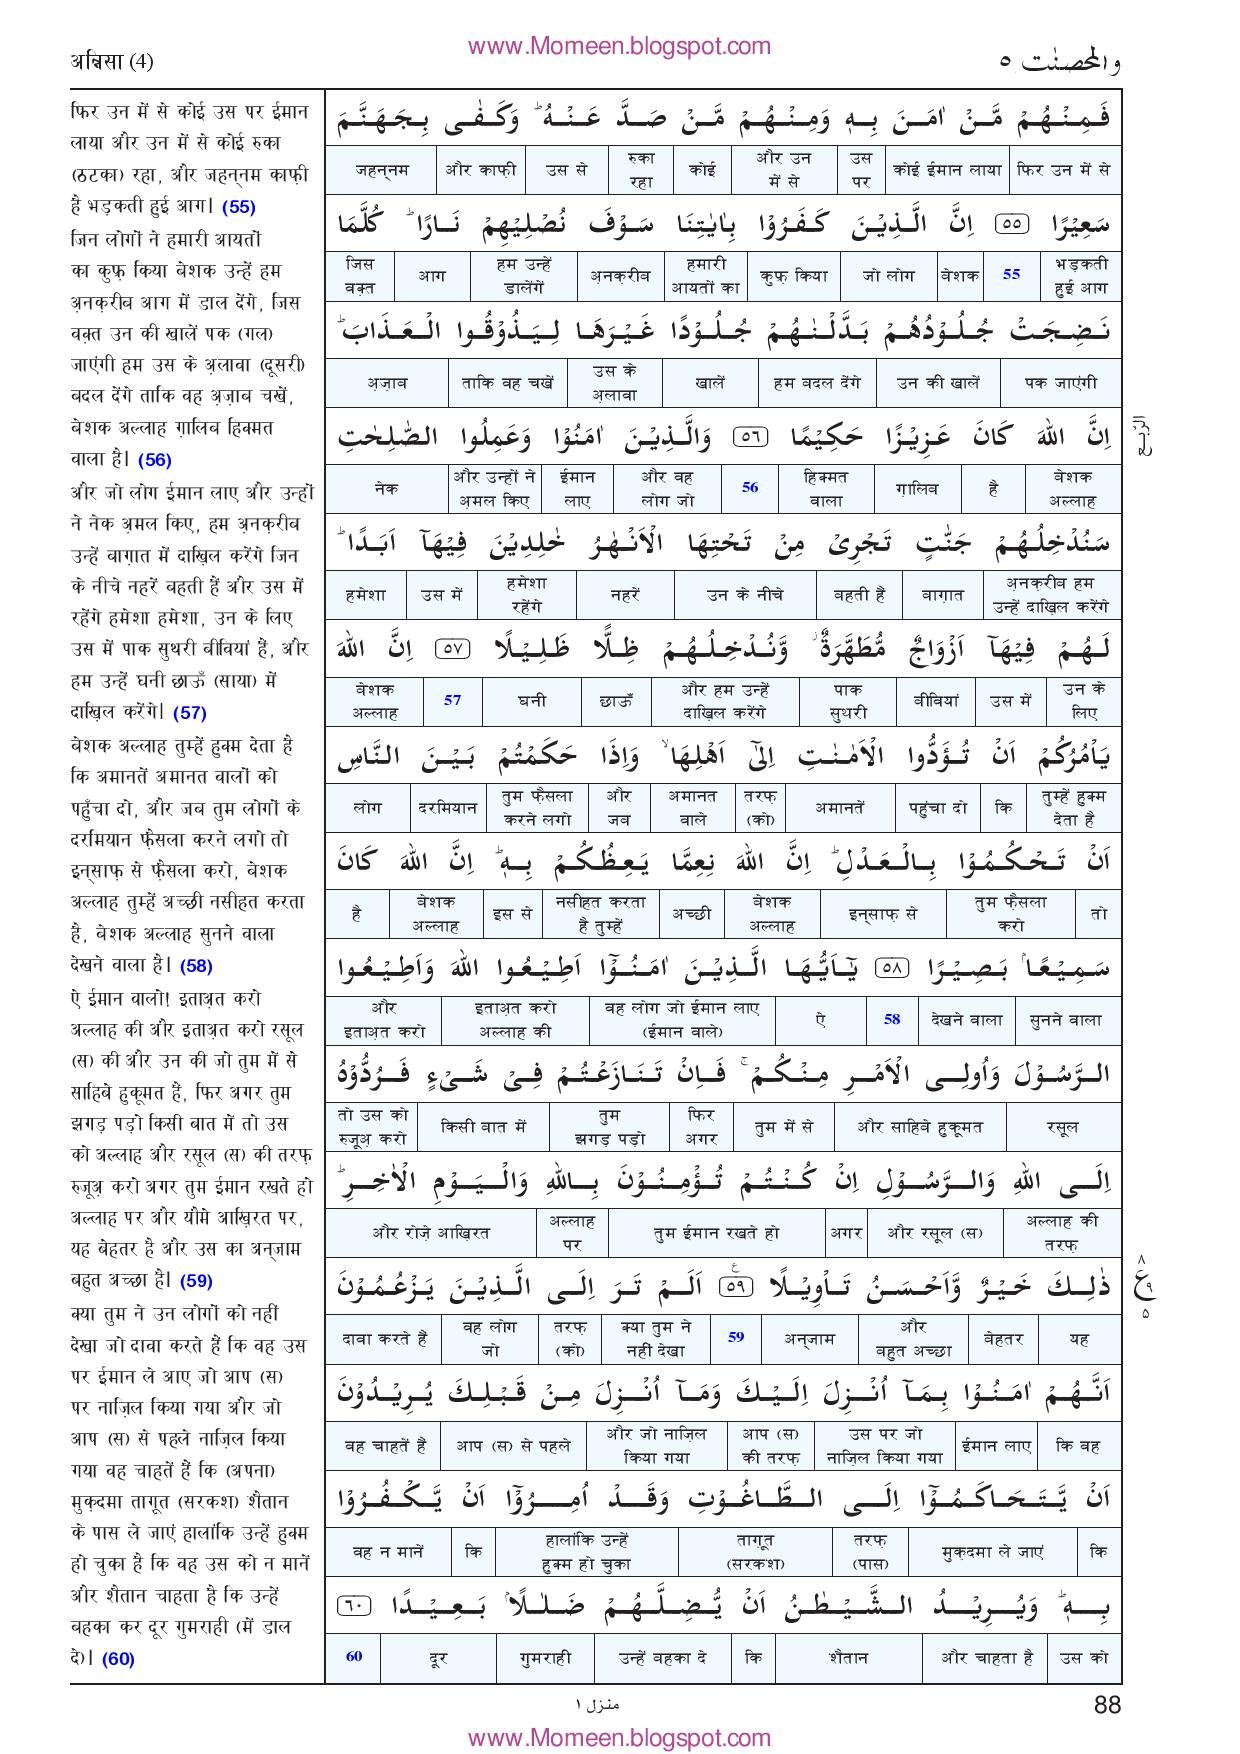 www.Momeen.blogspot.com
अन्निसा (4)
والمحصنٰت ٥
फिर उन में से कोई उस पर ईमान
लाया और उन में से कोई रुका
(ठटका) रहा, और जहन्नम काफ़ी
है भड़कती हुई आग। (55)
जिन लोगों ने हमारी आयतों
का कुफ़्र किया बेशक उन्हें हम
अ़नक़रीब आग में डाल देंगे, जिस
वक़्त उन की खालें पक (गल)
जाएंगी हम उस के अ़लावा (दूसरी)
बदल देंगे ताकि वह अ़ज़ाब चखें,
बेशक अल्लाह ग़ालिब हिक्मत
वाला है। (56)
और जो लोग ईमान लाए और उन्हों
ने नेक अ़मल किए, हम अ़नक़रीब
उन्हें बाग़ात में दाख़िल करेंगे जिन
के नीचे नहरें बहती हैं और उस में
रहेंगे हमेशा हमेशा, उन के लिए
उस में पाक सुथरी बीवियां हैं, और
हम उन्हें घनी छाऊँ (साया) में
दाख़िल करेंगे। (57)
बेशक अल्लाह तुम्हें हुक्म देता है
कि अमानतें अमानत वालों को
पहुँचा दो, और जब तुम लोगों के
दरमियान फ़ैसला करने लगो तो
इन्साफ़ से फ़ैसला करो, बेशक
अल्लाह तुम्हें अच्छी नसीहत करता
है, बेशक अल्लाह सुनने वाला
देखने वाला है। (58)
ऐ ईमान वालो! इताअ़त करो
अल्लाह की और इताअ़त करो रसूल
(स) की और उन की जो तुम में से
साहिबे हुकूमत हैं, फिर अगर तुम
झगड़ पड़ो किसी बात में तो उस
को अल्लाह और रसूल (स) की तरफ़
रुजूअ़ करो अगर तुम ईमान रखते हो
अल्लाह पर और यौमे आख़िरत पर,
यह बेहतर है और उस का अन्जाम
बहुत अच्छा है। (59)
क्या तुम ने उन लोगों को नहीं
देखा जो दावा करते हैं कि वह उस
पर ईमान ले आए जो आप (स)
पर नाज़िल किया गया और जो
आप (स) से पहले नाज़िल किया
गया वह चाहतें हैं कि (अपना)
मुक़दमा तागूत (सरकश) शैतान
के पास ले जाएं हालांकि उन्हें हुक्म
हो चुका है कि वह उस को न मानें
और शैतान चाहता है कि उन्हें
बहका कर दूर गुमराही (में डाल
दे)। (60)
فَمِنْهُمْ مَّنْ اٰمَنَ بِهٖ وَمِنْهُمْ مَّنْ صَدَّ عَنْهُ ؕ وَكَفٰى بِجَهَنَّمَ
जहन्नम और काफ़ी उस से रुका रहा कोई और उन में से उस पर कोई ईमान लाया फिर उन में से
سَعِيْرًا ٥٥ اِنَّ الَّذِيْنَ كَفَرُوْا بِاٰيٰتِنَا سَوْفَ نُصْلِيْهِمْ نَارًا ؕ كُلَّمَا
जिस वक़्त आग हम उन्हें डालेंगें अ़नक़रीब हमारी आयतों का कुफ़्र किया जो लोग बेशक 55 भड़कती हुई आग
نَضِجَتْ جُلُوْدُهُمْ بَدَّلْنٰهُمْ جُلُوْدًا غَيْرَهَا لِيَذُوْقُوا الْعَذَابَ ؕ
अ़ज़ाब ताकि वह चखें उस के अ़लावा खालें हम बदल देंगे उन की खालें पक जाएंगी
اِنَّ اللّٰهَ كَانَ عَزِيْزًا حَكِيْمًا ٥٦ وَالَّذِيْنَ اٰمَنُوْا وَعَمِلُوا الصّٰلِحٰتِ
الربع
नेक और उन्हों ने अ़मल किए ईमान लाए और वह लोग जो 56 हिक्मत वाला ग़ालिब है बेशक अल्लाह
سَنُدْخِلُهُمْ جَنّٰتٍ تَجْرِىْ مِنْ تَحْتِهَا الْاَنْهٰرُ خٰلِدِيْنَ فِيْهَآ اَبَدًا ؕ
हमेशा उस में हमेशा रहेंगे नहरें उन के नीचे बहती हैं बाग़ात अ़नक़रीब हम उन्हें दाख़िल करेंगे
لَهُمْ فِيْهَآ اَزْوَاجٌ مُّطَهَّرَةٌ ۫ وَّنُدْخِلُهُمْ ظِلًّا ظَلِيْلًا ٥٧ اِنَّ اللّٰهَ
बेशक अल्लाह 57 घनी छाऊँ और हम उन्हें दाख़िल करेंगे पाक सुथरी बीवियां उस में उन के लिए
يَاْمُرُكُمْ اَنْ تُؤَدُّوا الْاَمٰنٰتِ اِلٰٓى اَهْلِهَا ۙ وَاِذَا حَكَمْتُمْ بَيْنَ النَّاسِ
लोग दरमियान तुम फ़ैसला करने लगो और जब अमानत वाले तरफ़ (को) अमानतें पहुंचा दो कि तुम्हें हुक्म देता है
اَنْ تَحْكُمُوْا بِالْعَدْلِ ؕ اِنَّ اللّٰهَ نِعِمَّا يَعِظُكُمْ بِهٖ ؕ اِنَّ اللّٰهَ كَانَ
है बेशक अल्लाह इस से नसीहत करता है तुम्हें अच्छी बेशक अल्लाह इन्साफ़ से तुम फ़ैसला करो तो
سَمِيْعًا ۢ بَصِيْرًا ٥٨ يٰٓاَيُّهَا الَّذِيْنَ اٰمَنُوْٓا اَطِيْعُوا اللّٰهَ وَاَطِيْعُوا
और इताअ़त करो इताअ़त करो अल्लाह की वह लोग जो ईमान लाए (ईमान वाले) ऐ 58 देखने वाला सुनने वाला
الرَّسُوْلَ وَاُولِى الْاَمْرِ مِنْكُمْ ۚ فَاِنْ تَنَازَعْتُمْ فِىْ شَىْءٍ فَرُدُّوْهُ
तो उस को रुजूअ़ करो किसी बात में तुम झगड़ पड़ो फिर अगर तुम में से और साहिबे हुकूमत रसूल
اِلَى اللّٰهِ وَالرَّسُوْلِ اِنْ كُنْتُمْ تُؤْمِنُوْنَ بِاللّٰهِ وَالْيَوْمِ الْاٰخِرِ ؕ
और रोज़े आख़िरत अल्लाह पर तुम ईमान रखते हो अगर और रसूल (स) अल्लाह की तरफ़
ذٰلِكَ خَيْرٌ وَّاَحْسَنُ تَاْوِيْلًا ٥٩ ع اَلَمْ تَرَ اِلَى الَّذِيْنَ يَزْعُمُوْنَ
٨ ع ٩ ٥
दावा करते हैं वह लोग जो तरफ़ (को) क्या तुम ने नहीं देखा 59 अन्जाम और बहुत अच्छा बेहतर यह
اَنَّهُمْ اٰمَنُوْا بِمَآ اُنْزِلَ اِلَيْكَ وَمَآ اُنْزِلَ مِنْ قَبْلِكَ يُرِيْدُوْنَ
वह चाहतें हैं आप (स) से पहले और जो नाज़िल किया गया आप (स) की तरफ़ उस पर जो नाज़िल किया गया ईमान लाए कि वह
اَنْ يَّتَحَاكَمُوْٓا اِلَى الطَّاغُوْتِ وَقَدْ اُمِرُوْٓا اَنْ يَّكْفُرُوْا
वह न मानें कि हालांकि उन्हें हुक्म हो चुका ताग़ूत (सरकश) तरफ़ (पास) मुक़दमा ले जाएं कि
بِهٖ ؕ وَيُرِيْدُ الشَّيْطٰنُ اَنْ يُّضِلَّهُمْ ضَلٰلًا ۢ بَعِيْدًا ٦٠
60 दूर गुमराही उन्हें बहका दे कि शैतान और चाहता है उस को
منزل ١
88
www.Momeen.blogspot.com